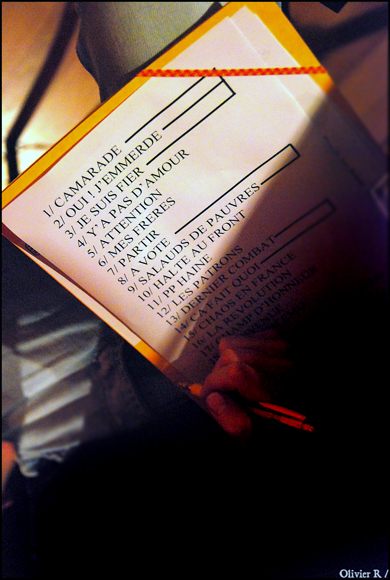 1/ CAMARADE
2/ OUI ! J'EMMERDE
3/ JE SUIS FIER
4/ Y'A PAS D'AMOUR
5/ ATTENTION
6/ MES FRERES
7/ PARTIR
8/ A VOTE
9/ SALAUDS DE PAUVRES
10/ HALTE AU FRONT
11/ PP HAINE
12/ LES PATRONS
13/ DERNIER COMBAT
14/ CA FAIT QUOI
15/ CHAOS EN FRANCE
16/ LA REVOLUTION
D'HONNEUR
Olivier R /